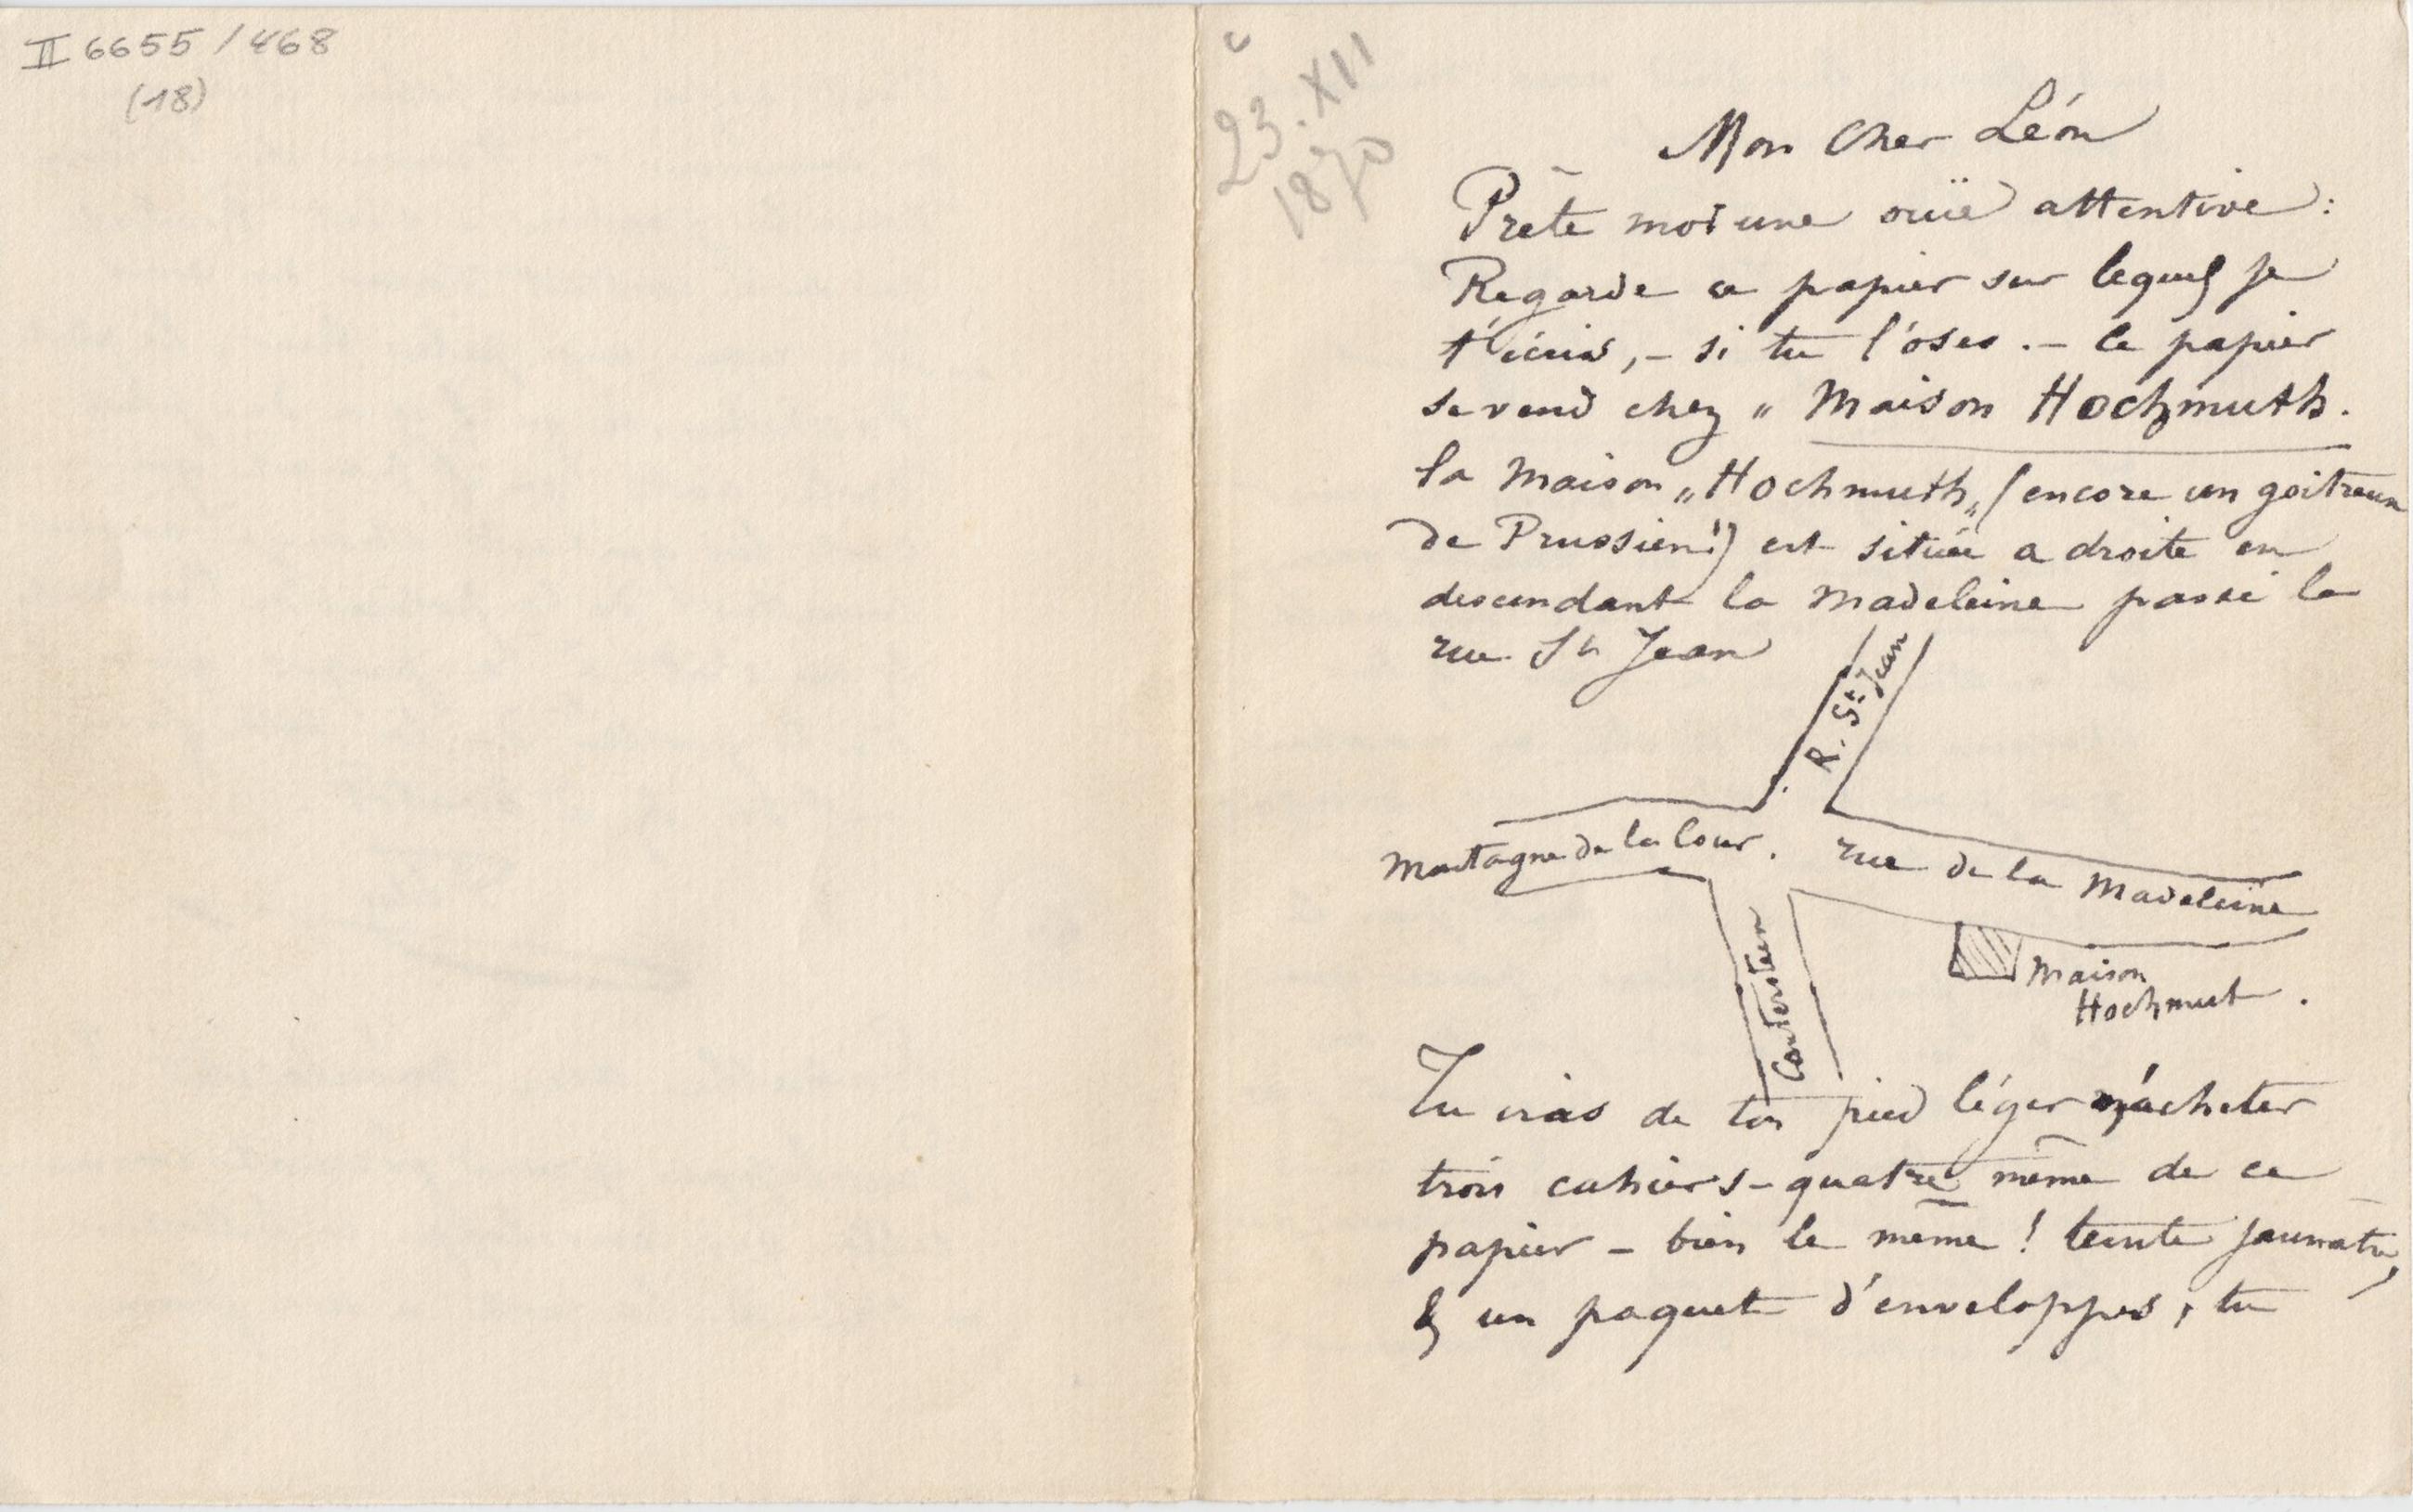 II 6655 / 468
(18)
23.XII
1870
Mon Cher Léon
Prête moi une ouïe attentive :
Regarde ce papier sur lequel je
t'écris, – si tu l'oses . – Ce papier
se vend chez „ Maison Hochmuth.
la Maison „Hochmuth„ (encore un goitreux
de Prussien!) est située a droite en
descendant la Madeleine passé la
rue St Jean
R. St. Jean
Montagne de la Cour .
rue de la Madeleine
Cantersteen
Maison
Hochmut .
Tu iras de ton pied léger m'acheter
trois cahiers – quatre même de ce
papier – bien le même ! teinte jaunatre,
& un paquet d'enveloppes, tu